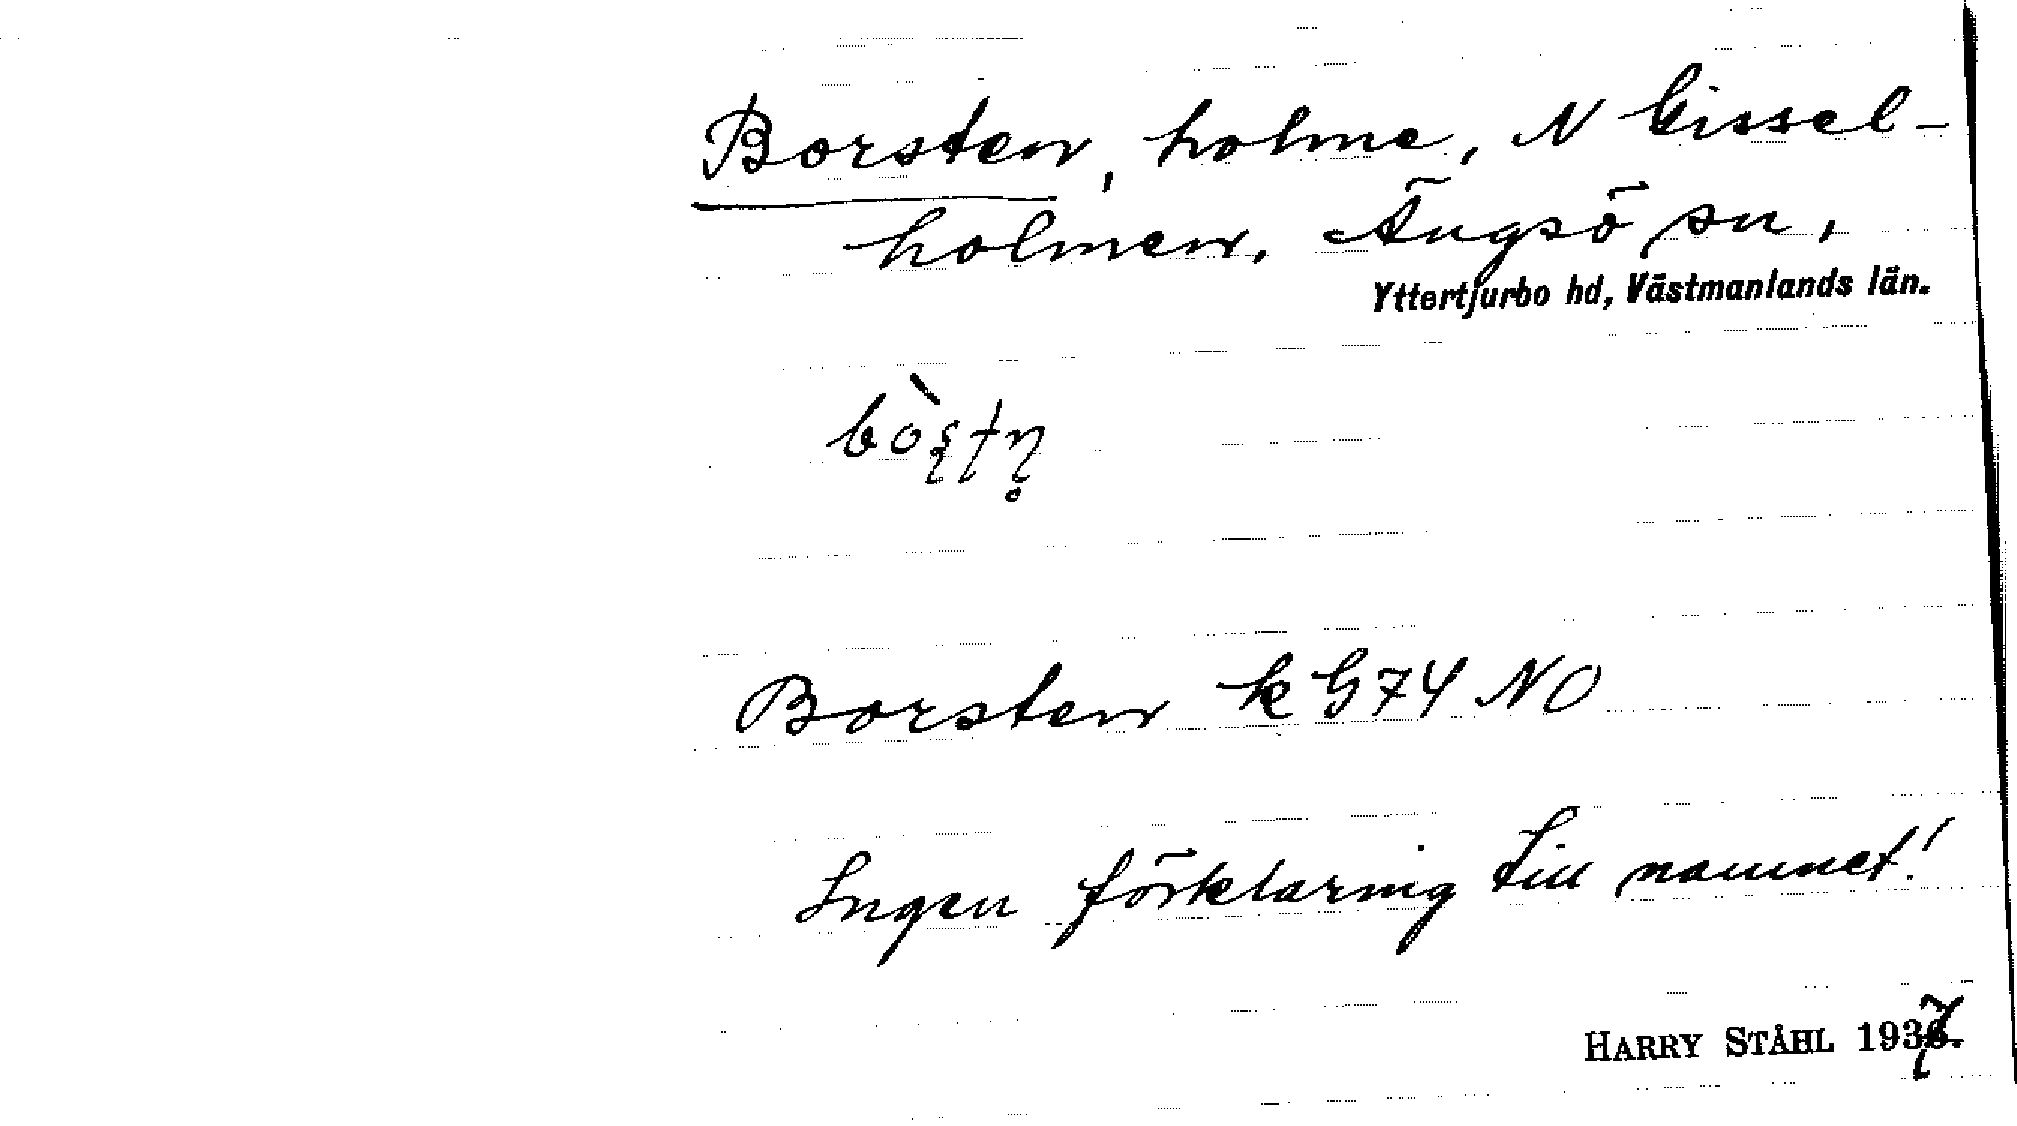 Borsten, holme, N Gissel-
holmen. Ängsö sn,
Yttertjurbo hd, Västmanlands län.
Borsten k G74 NO
Ingen förklaring till namnet!
HARRY STÅHL 1937.